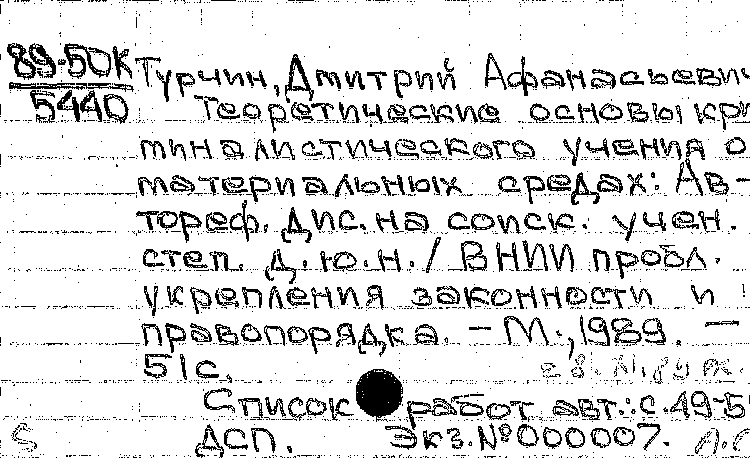 89-50К Турчин, Дмитрий Афанасьевич
5440 Теоретические основы кри
миналистического учения о
материальных средах: Ав-
тореф. дис. на соиск. учен.
степ. д.ю.н./ ВНИИ пробл.
укрепления законности и
правопорядка. — М., 1989. —
51с.
Список работ авт.: с. 49-5
ДСП. Экз. №000007.